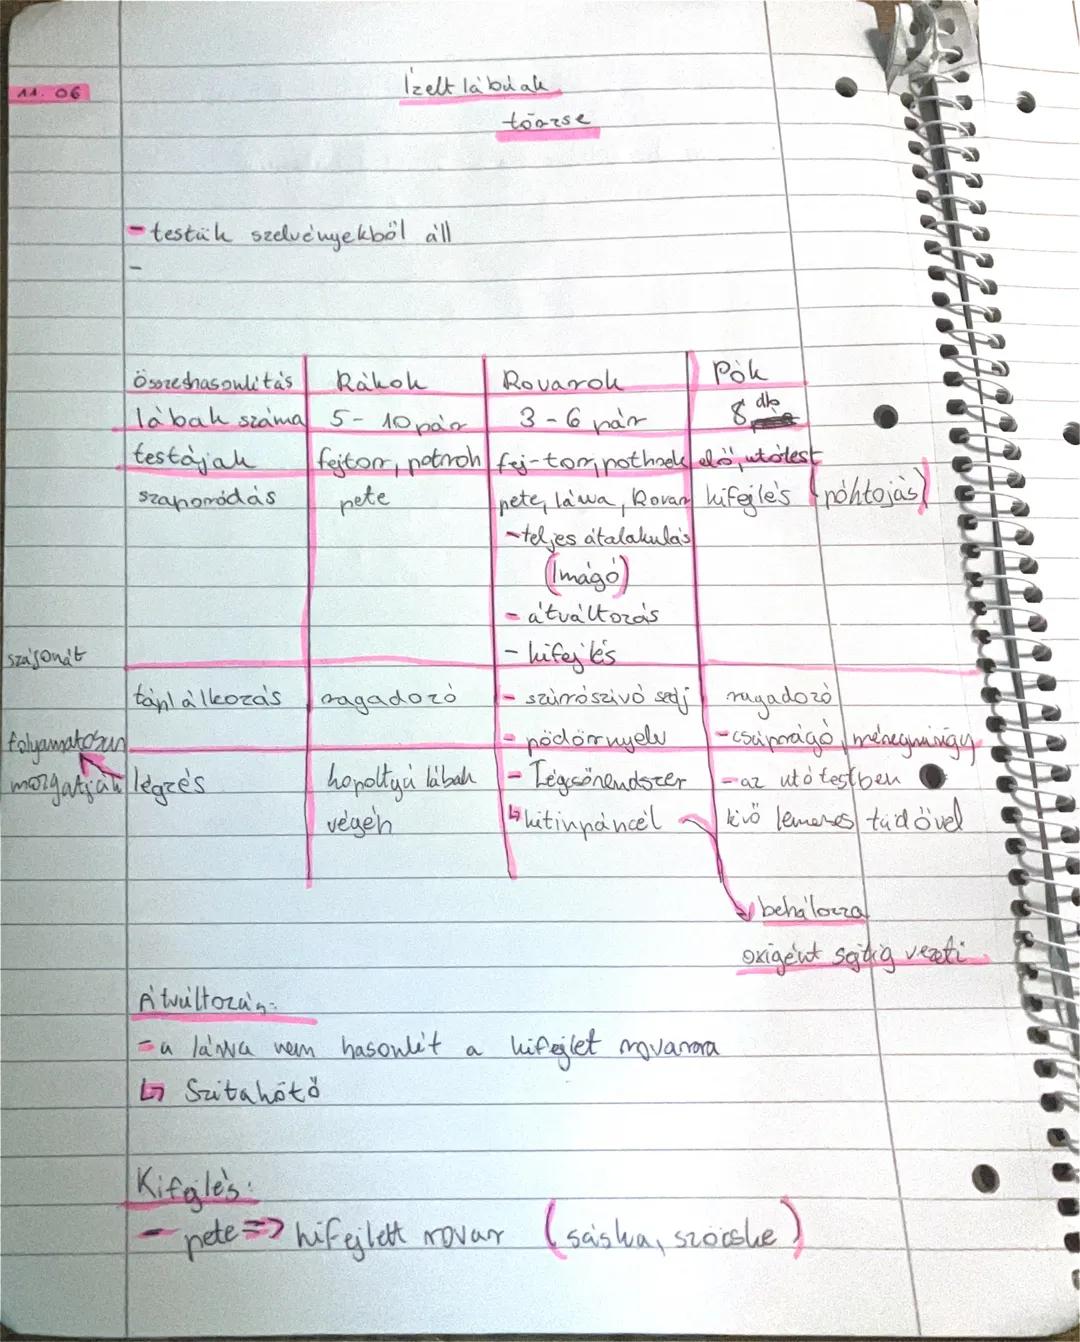 11.06
Ízeltlábúak
törzse
- testük szelvényekből áll
-
Összeshasonlitás Rákok Rovarok Pók
lábak száma 5 - 10 pár 3 - 6 pár 8 db
testájak fejtor, potroh fej-tor, pothrok elő, utótest
szaporodás pete pete, lárva, Rovar kifejlés (póhtojás)
- teljes átalakulás
(Imágó)
- átváltozás
- kifejlés
szájonát
táplálkozás ragadozó - szúrószivó száj ragadozó
folyamatosan - pödörnyelv - csáprágó, méregmirigy
mozgatják légzés kopoltyú lábak - Légcsőrendszer - az utótestben
végén ↳ kitinpáncél kivő lemezes tüdővel
behálozza
oxigént sejtig vezeti
Átváltozás:
- a lárva nem hasonlít a kifejlet rovarora
↳ Szitakötő
Kifejlés:
- pete => kifejlett rovar (sáska, szöcske)